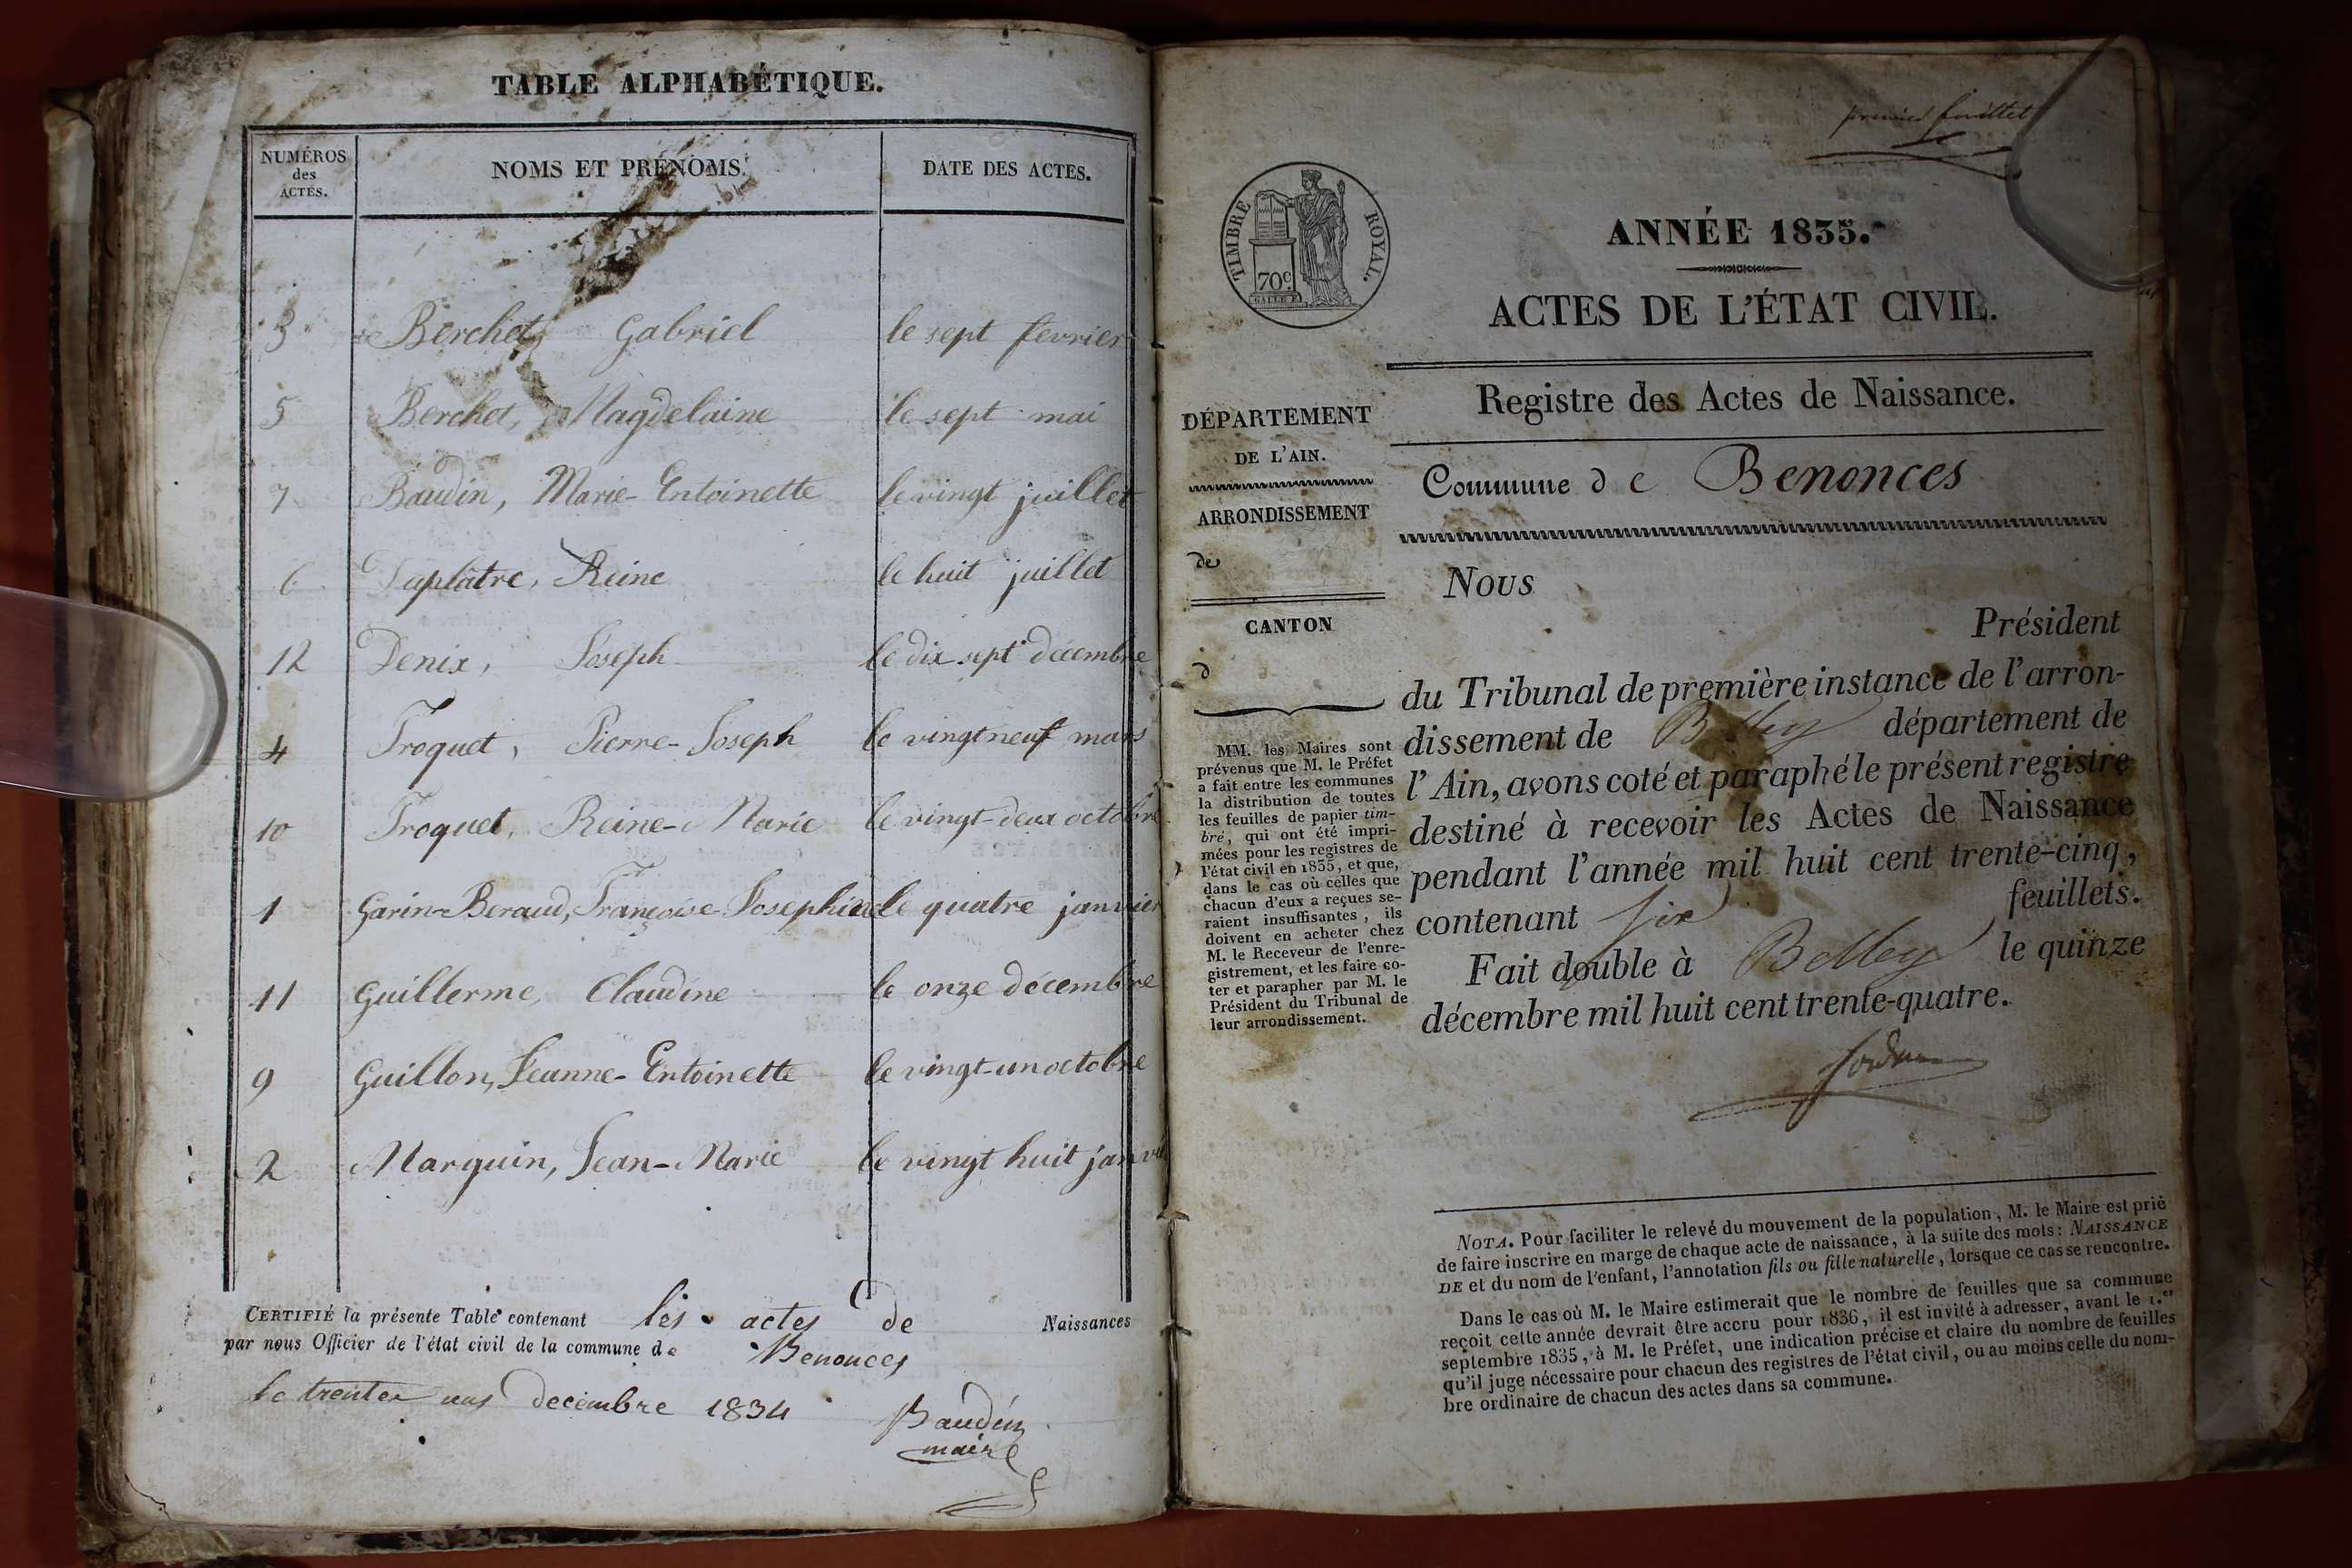 TABLE ALPHABÉTIQUE.
NUMÉROS des ACTES. NOMS ET PRÉNOMS. DATE DES ACTES.
3 Berchet, Gabriel le sept fevrier
5 Berchet, Magdelaine le sept mai
7 Baudin, Marie-Entoinette le vingt juillet
6 Duplâtre, Reine le huit juillet
12 Denix, Joseph le dix sept décembre
4 Froquet, Pierre-Joseph le vingt neuf mars
10 Froquet, Reine-Marie le vingt-deux octobre
1 Garin-Beraud, Françoise-Josephine le quatre janvier
11 Guillerme, Claudine le onze décembre
9 Guillon, Jeanne-Entoinette le vingt-un octobre
2 Marquin, Jean-Marie le vingt huit janvi
CERTIFIÉ la présente Table contenant les actes de Naissances
par nous Officier de l'état civil de la commune de Benonces
le trente un decembre 1834 Baudin
maire
premier feuillet
TIMBRE ROYAL.
70c
ANNÉE 1835.
ACTES DE L'ÉTAT CIVIL.
Registre des Actes de Naissance.
Commune de Benonces
DÉPARTEMENT
DE L'AIN.
ARRONDISSEMENT
de
CANTON
d
MM. les Maires sont
prévenus que M. le Préfet
a fait entre les communes
la distribution de toutes
les feuilles de papier tim-
bré, qui ont été impri-
mées pour les registres de
l'état civil en 1835, et que,
dans le cas où celles que
chacun d'eux a reçues se-
raient insuffisantes, ils
doivent en acheter chez
M. le Receveur de l'enre-
gistrement, et les faire co-
ter et parapher par M. le
Président du Tribunal de
leur arrondissement.
Nous
Président
du Tribunal de première instance de l'arron-
dissement de Belley département de
l'Ain, avons coté et paraphé le présent registre
destiné à recevoir les Actes de Naissance
pendant l'année mil huit cent trente-cinq,
contenant six feuillets.
Fait double à Belley le quinze
décembre mil huit cent trente-quatre.
NOTA. Pour faciliter le relevé du mouvement de la population, M. le Maire est prié
de faire inscrire en marge de chaque acte de naissance, à la suite des mots: NAISSANCE
DE et du nom de l'enfant, l'annotation fils ou fille naturelle, lorsque ce cas se rencontre.
Dans le cas où M. le Maire estimerait que le nombre de feuilles que sa commune
reçoit cette année devrait être accru pour 1836, il est invité à adresser, avant le 1.er
septembre 1835, à M. le Préfet, une indication précise et claire du nombre de feuilles
qu'il juge nécessaire pour chacun des registres de l'état civil, ou au moins celle du nom-
bre ordinaire de chacun des actes dans sa commune.